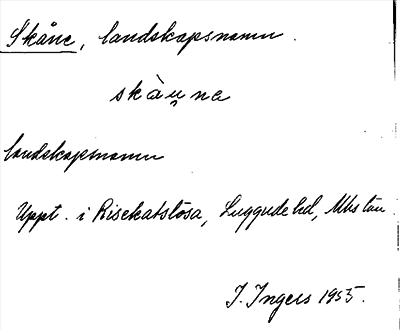 Skåne, landskapsnamn.
skàu̯na
landskapsnamn
Uppt. i Risekatslösa, Luggude hd, Mhs län.
I. Ingers 1955.